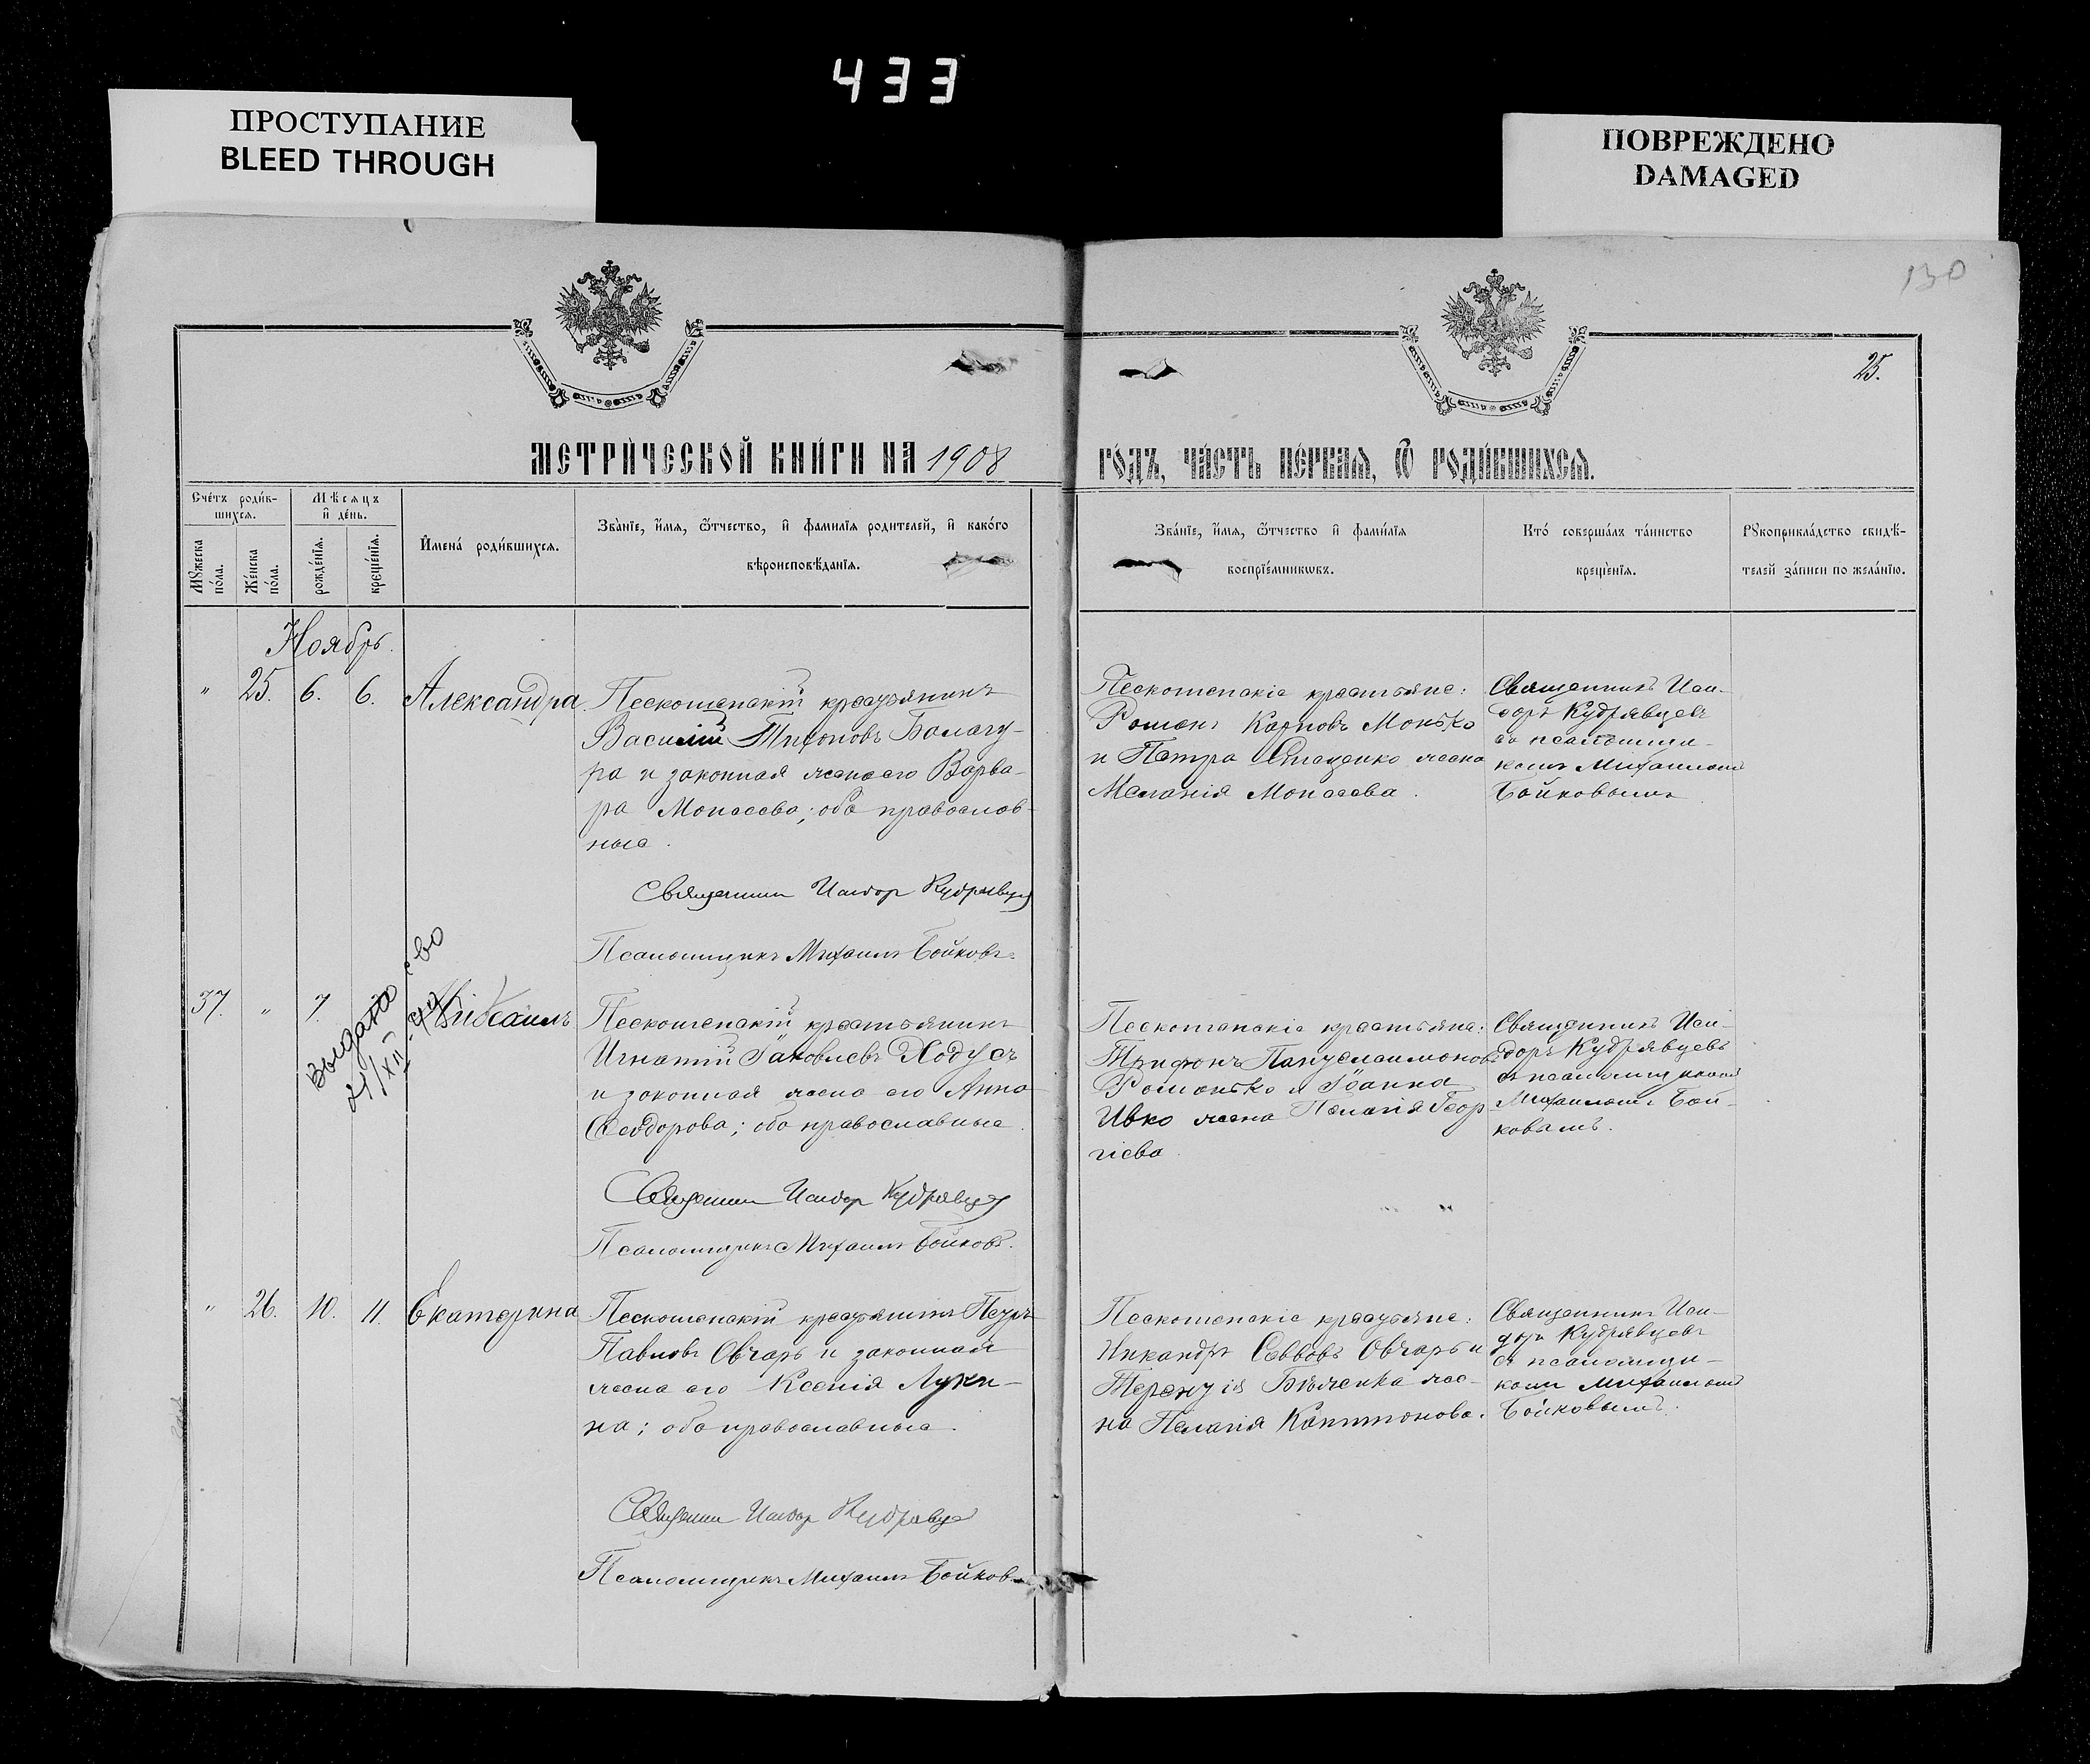 433
ПРОСТУПАНИЕ
BLEED THROUGH
ПОВРЕЖДЕНО
DAMAGED
130
25.
МЕТРИ́ЧЕСКОЙ КНИ́ГИ НА 1908
ГО́ДЪ, ЧА́СТЬ ПЕ́РВАЯ, Ѽ РОДИ́ВШИХСЯ.
Сче́тъ роди́в-
шихся.
Мѣсяцъ
и҆ де́нь.
Мꙋжеска по́ла.
Же́нска по́ла.
рожде́нїя.
креще́нїя.
И҆мена́ роди́вшихся.
Зва́нїе, и҆́мя, ѻ҆́тчество, и҆ фамилїя родителей, и҆ како́го
вѣроисповѣ́данїя.
Зва́нїе, и҆́мя, ѻ҆́тчество и҆ фами́лїя
воспрїе́мникѡвъ.
Кто́ соверша́лъ та́инство
креще́нїя.
Рꙋкоприкла́дство свидѣ́-
телей за́писи по жела́нїю.
Ноябрь.
" 25. 6. 6. Александра
Пескошенскій крестьянинъ
Василій Тихоновъ Балагу-
ра и законная жена его Варва-
ра Моисеева; оба православ-
ные.
Священник Исидор Кудрявцев
Псаломщикъ Михаилъ Бойковъ.
Романъ Карповъ Монько
и Петра Стаценко жена
Меланія Моисеева.
Священникъ Иси-
доръ Кудрявцевъ
съ псаломщи-
комъ Михаиломъ
Бойковымъ
37. " 7. Михаилъ
Выдано с-во
21/XII-
Игнатій Іаковлевъ Ходусъ
и законная жена его Анна
Ѳеодорова; оба православные.
Священник Исидор Кудрявцев
Псаломщикъ Михаилъ Бойковъ.
Трифонъ Пантелаимоновъ
Романько и Іоанна
Ивко жена Пелагія Геор-
гіева.
Священникъ Иси-
доръ Кудрявцевъ
съ псаломщикомъ
Михаиломъ Бой-
ковымъ.
" 26. 10. 11. Екатерина
Пескошенскій крестьянинъ Петръ
Павловъ Овчаръ и законная
жена его Ксенія Луки-
на; оба православные.
Священник Исидор Кудрявцев
Псаломщикъ Михаилъ Бойковъ
Никандръ Саввовъ Овчаръ и
Терентія Бѣленка же-
на Пелагія Капитонова.
Священникъ Иси-
доръ Кудрявцевъ
съ псаломщи-
комъ Михаиломъ
Бойковымъ.